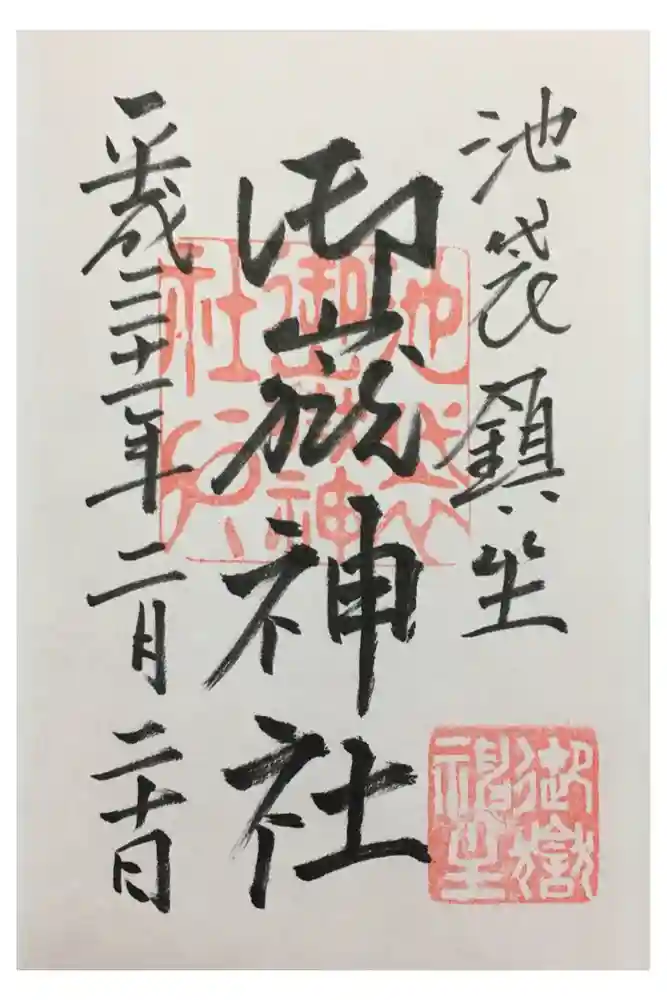 池袋鎮坐
御嶽神社
平成三十一年二月二十日
池袋
御嶽神
御嶽